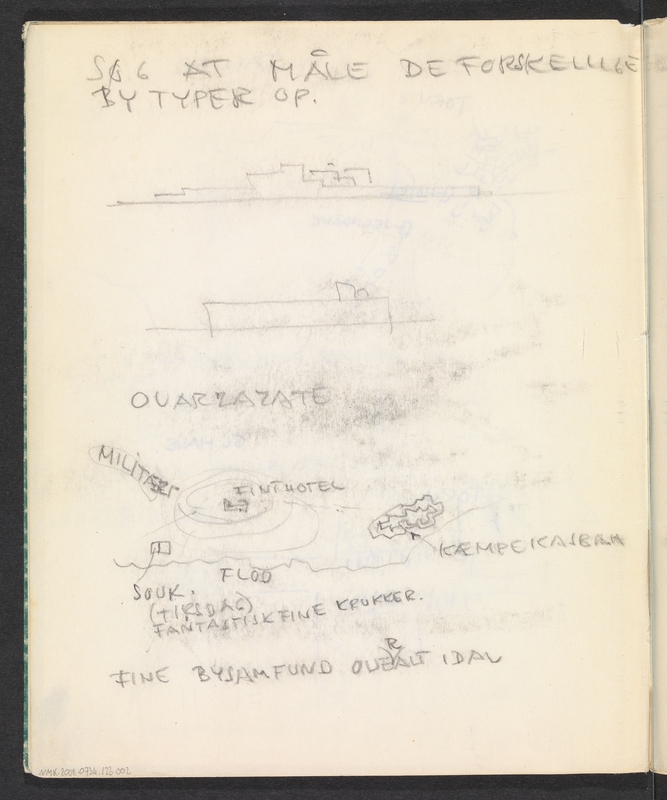 SØG AT MÅLE DE FORSKELLIGE
BY TYPER OP.
OUARZAZATE
MILITÆR
FINT HOTEL
KÆMPEKASBAH
FLOD
SOUK.
(TIRSDAG)
FANTASTISK FINE KRUKKER.
FINE BYSAMFUND OVERALT I DAL